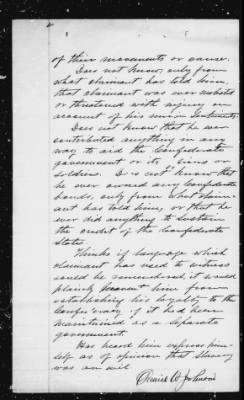 of their movements or cause.
Does not know, only from
what claimant has told him,
that claimant was ever molested
or threatened with injury on
account of his union sentiments
Does not know that he ever
contributed anything in any
way to aid the Confederate
government or its signs or
soldiers. Does not know that
he ever owned any Confederate
bonds, only from what claim-
ant has told him, or that he
ever did anything to sustain
the credit of the Confederate
States.
Thinks if language which
claimant has used to witness
could be remembered, it would
plainly prevent him from
establishing his loyalty to the
Confederacy if it had been
maintained as a separate
government.
Has heard him express him-
self as of opinion that slavery
was an evil
Johnson